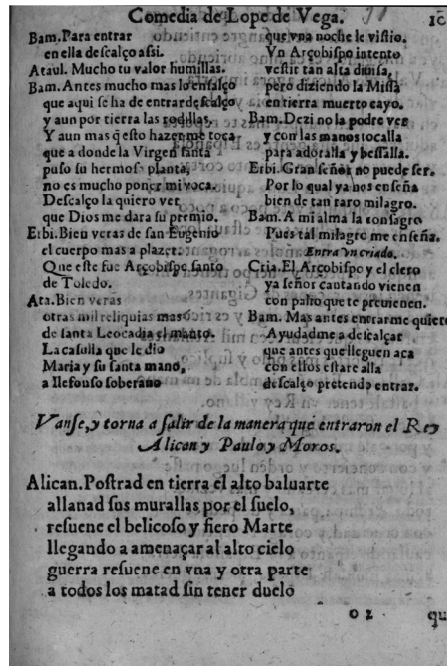 Comedia de Lope de Vega.
Bam. Para entrar
en ella descalço assi.
Ataul. Mucho tu valor humillas.
Bam. Antes mucho mas lo ensalço
que aqui se ha de entrar descalço
y aun por tierra las rodillas.
Y aun mas q̃ esto hazer me toca
que a donde la Virgen santa
puso su hermosa planta,
no es mucho poner mi voca.
Descalço la quiero ver
que Dios me dara su premio.
Erbi. Bien veras de san Eugenio
el cuerpo mas a plazer.
Que este fue Arçobispo santo
de Toledo.
Ata. Bien veras
otras mil reliquias mas
de santa Leocadia el manto.
La casulla que le dio
Maria y su santa mano,
a Ilefonso soberano
que vna noche le vistio.
Vn Arçobispo intento
vestir tan alta diuisa,
pero diziendo la Missa
en tierra muerto cayo.
Bam. Dezi no la podre ver
y con las manos tocalla
para adoralla y bessalla.
Erbi. Gran señor no puede ser.
Por lo qual ya nos enseña
bien de tan raro milagro.
Bam. A mi alma la consagro
Pues tal milagro me enseña.
Entra vn criado.
Cria. El Arçobispo y el clero
ya señor cantando vienen
con palio que te preuienen.
Bam. Mas antes entrarme quiero
Ayudadme a descalçar
que antes que lleguen aca
con ellos estare alla
descalço pretendo entrar.
Vanse, y torna a salir de la manera que entraron el Rey
Alican y Paulo y Moros.
Alican. Postrad en tierra el alto baluarte
allanad sus murallas por el suelo,
resuene el belicoso y fiero Marte
llegando a amenaçar al alto cielo
guerra resuene en vna y otra parte
a todos los matad sin tener duelo
O 2 qu